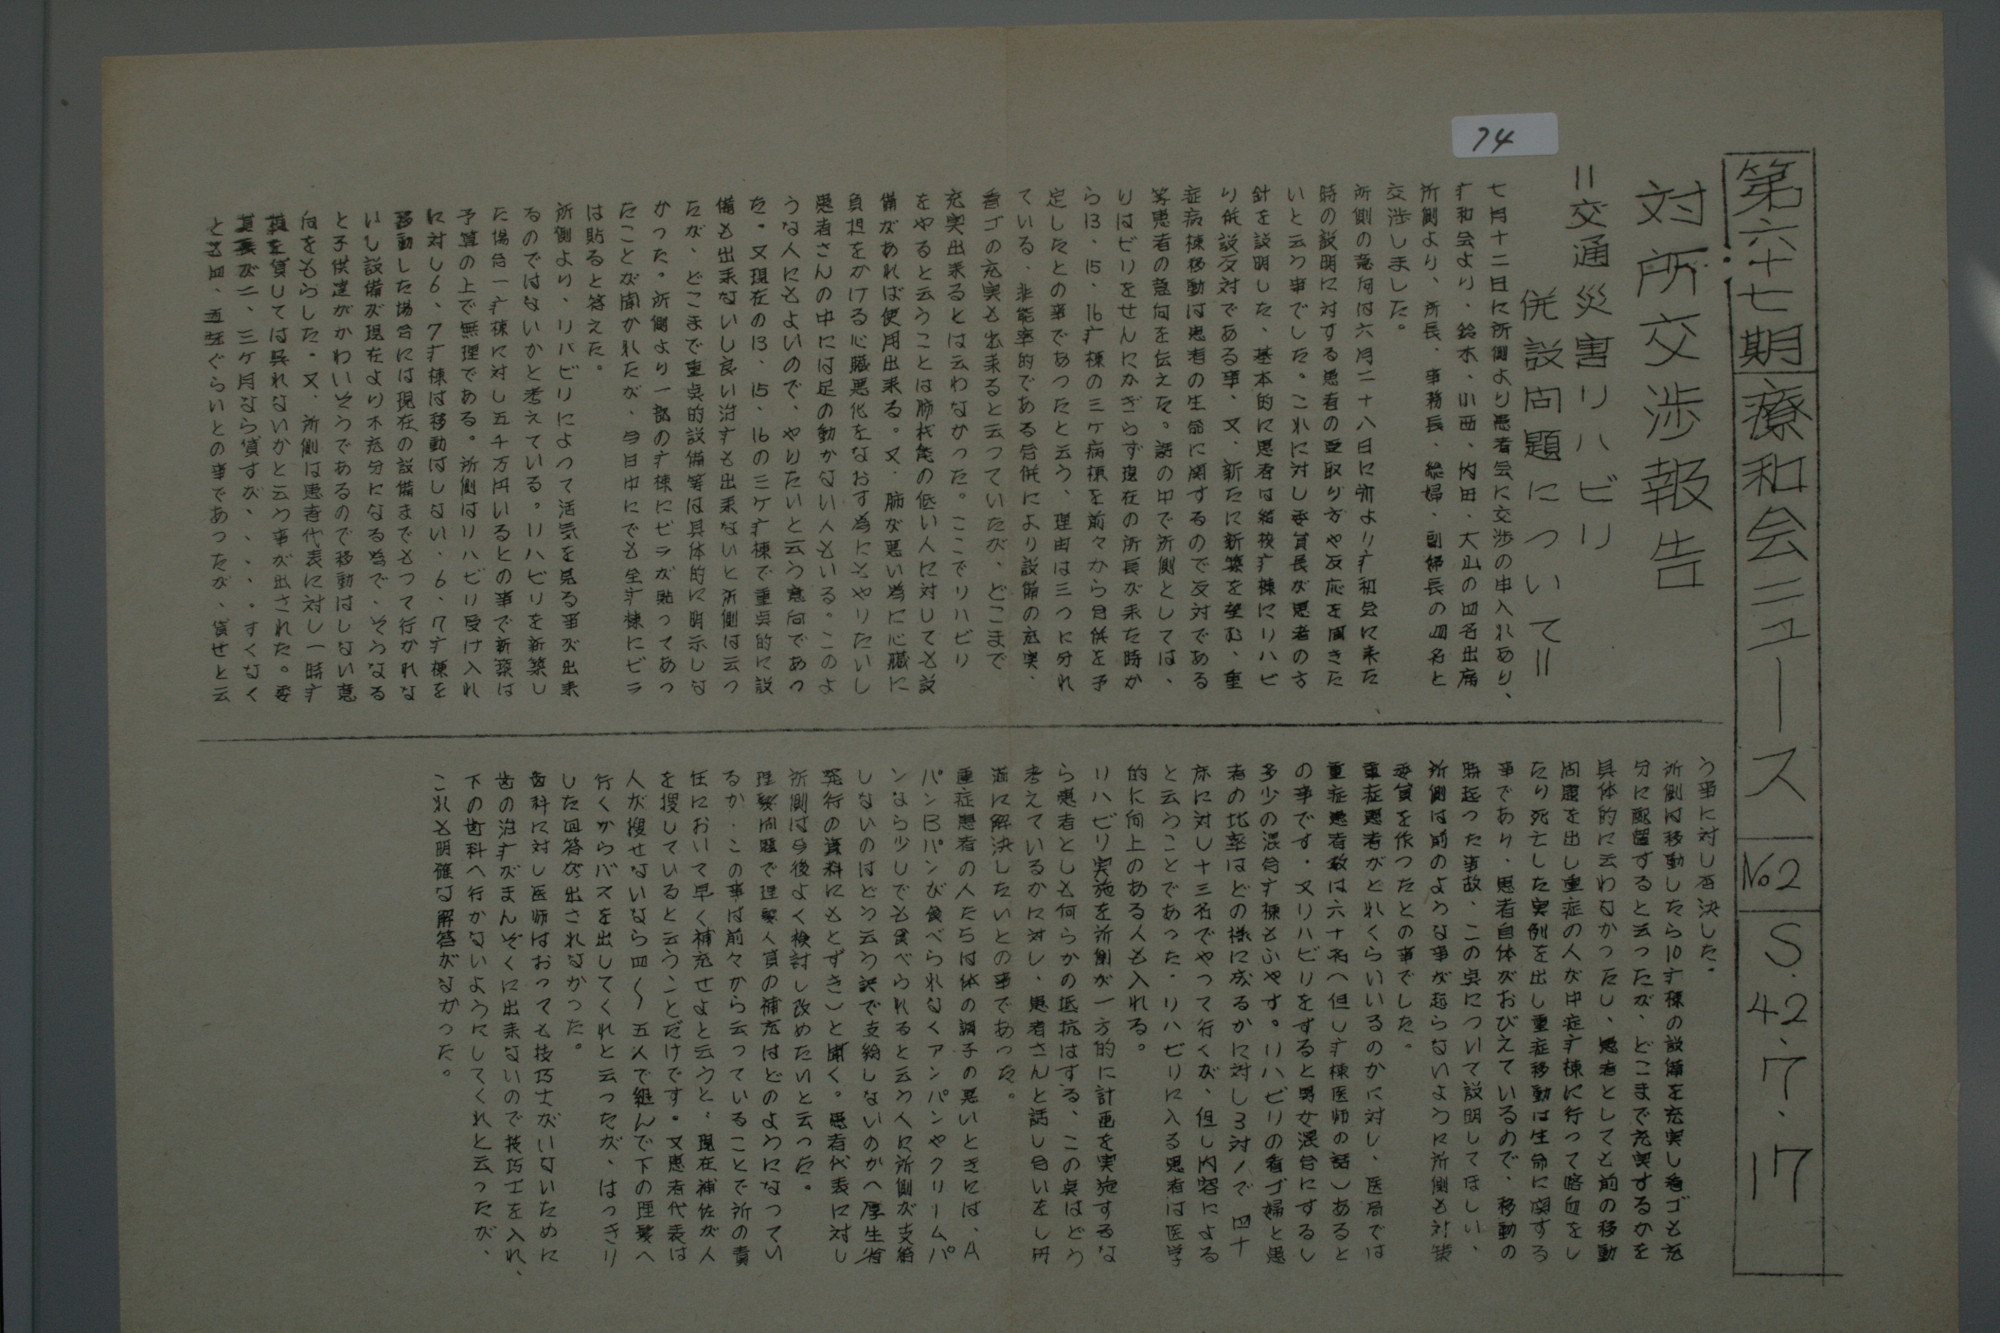 74
第六十七期 療和会ニュース No2 S.42.7.17
対所交渉報告
=交通災害リハビリ
併設問題について=
七月十二日に所側より患者会に交渉の申入れあり、
疒和会より、鈴木、小西、内田、大山の四名出席
所側より、所長、事務長、総婦、副婦長の四名と
交渉しました。
所側の意向は六月二十八日に所より疒和会に来た
時の説明に対する患者の受取り方や反応を聞きた
いと云う事でした。これに対し委員長が患者の方
針を説明した、基本的に患者は結核疒棟にリハビ
り併設反対である事、又、新たに新築を望む、重
症病棟移動は患者の生命に関するので反対である
等患者の意向を伝えた。話の中で所側としては、
りはビリをせんにかぎらず現在の所長が来た時か
ら13、15、16疒棟の三ケ病棟を前々から合併を予
定したとの事であつたと云う、理由は三つに分れ
ている、非能率的である合併により設備の充実、
看ゴの充実も出来ると云つていたが、どこまで
充実出来るとは云わなかった。ここでリハビリ
をやると云うことは肺機能の低い人に対しても設
備があれば使用出来る。又、肺が悪い為に心臓に
負担をかける心臓悪化をなおす為にもやりたいし
患者さんの中には足の動かない人もいる。このよ
うな人にもよいので、やりたいと云う意向であつ
た。又現在の13、15、16の三ケ疒棟で重点的に設
備も出来ないし良い治疒も出来ないと所側は云つ
たが、どこまで重点的設備等は具体的に明示しな
かった。所側より一部の疒棟にビラが貼ってあっ
たことが聞かれたが、今日中にでも全疒棟にビラ
は貼ると答えた。
所側より、リハビリによつて活気を見る事が出来
るのではないかと考えている。リハビリを新築し
た場合一疒棟に対し五千万円いるとの事で新築は
予算の上で無理である。所側はリハビリ受け入れ
に対し6、7疒棟は移動はしない、6、7疒棟を
移動した場合には現在の設備までもつて行かれな
いし設備が現在より不充分になる為で、そうなる
と子供達がかわいそうであるので移動はしない意
向をもらした。又、所側は患者代表に対し一時疒
棟を貸しては呉れないかと云う事が出された。委
員長が二、三ケ月なら貸すが、、、、すくなく
とも四、五年ぐらいとの事であつたが、貸せと云
う事に対し否決した。
所側は移動したら10疒棟の設備を充実し看ゴも充
分に配置すると云つたが、どこまで充実するかを
具体的に云わなかつたし、患者としても前の移動
問題を出し重症の人が中症疒棟に行って喀血をし
たり死亡した実例を出し重症移動は生命に関する
事であり、患者自体がおびえているので、移動の
時起つた事故、この点について説明してほしい、
所側は前のような事が起らないように所側も対策
委員を作つたとの事でした。
重症患者がどれくらいいるのかに対し、医局では
重症患者数は六十名(但し疒棟医師の話)あると
の事です。又リハビリをすると男女混合にするし
多少の混合疒棟もふやす。リハビリの看ゴ婦と患
者の比率はどの様に成るかに対し3対1で四十
床に対し十三名でやつて行くが、但し内容による
と云うことであった。リハビリに入る患者は医学
的に向上のある人も入れる。
リハビリ実施を所側が一方的に計画を実施するな
ら患者としも何らかの抵抗はする、この点はどう
考えているかに対し、患者さんと話し合いをし円
満に解決したいとの事であつた。
重症患者の人たちは体の調子の悪いときには、A
パンBパンが食べられなくアンパンやクリームパ
ンなら少しでも食べられると云う人に所側が支給
しないのはどう云う訳で支給しないのか(厚生省
発行の資料にもとずき)と聞く。患者代表に対し
所側は今後よく検討し改めたいと云つた。
理髪問題で理髪人員の補充はどのようになつてい
るか、この事は前々から云っていることで所の責
任において早く補充せよと云うと、現在補佐が人
を捜していると云うことだけです。又患者代表は
人が捜せないなら四〜五人で組んで下の理髪へ
行くからバスを出してくれと云ったが、はっきり
した回答が出されなかつた。
歯科に対し医師はおつても技巧士がいないために
歯の治疒がまんぞくに出来ないので技巧士を入れ、
下の歯科へ行かないようにしてくれと云ったが、
これも明確な解答がなかつた。